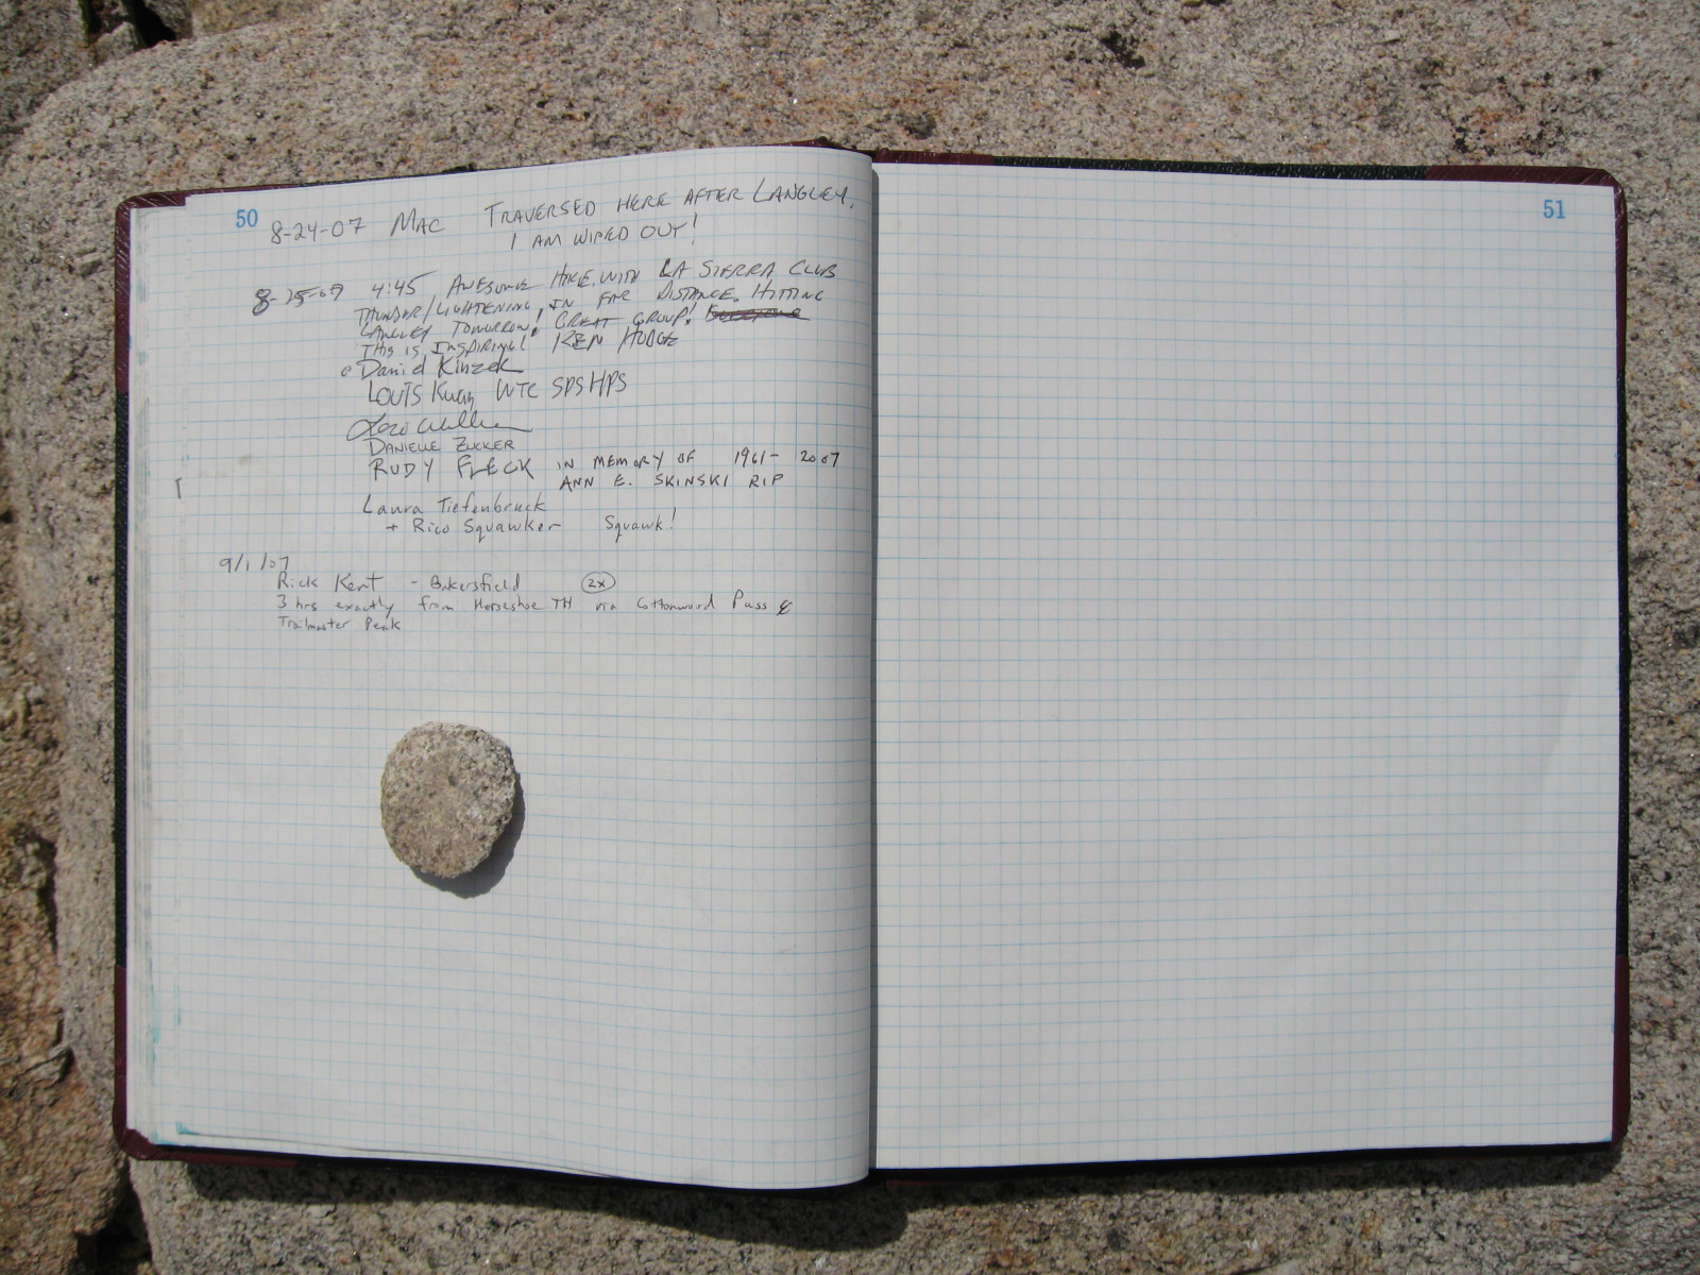 50
51
8-24-07 MAC TRAVERSED HERE AFTER LANGLEY.
I AM WIPED OUT!
4:45 AWESOME HIKE WITH LA SIERRA CLUB
THUNDER/LIGHTENING IN FAR DISTANCE. HITTING
LANGLEY TOMORROW! GREAT GROUP!
THIS IS INSPIRING! KEN HODGE
Daniel Kinzek
LOUIS WTC SPS HPS
DANIELLE ZUCKER
RUDY FLECK IN MEMORY OF 1961- 2007
ANN E. SKINSKI RIP
Laura Tiefenbruck
+ Rico Squawker Squawk!
9/1/07
Rick Kent - Bakersfield 2x
3 hrs exactly from Horseshoe TH via Cottonwood Pass &
Trailmaster Peak